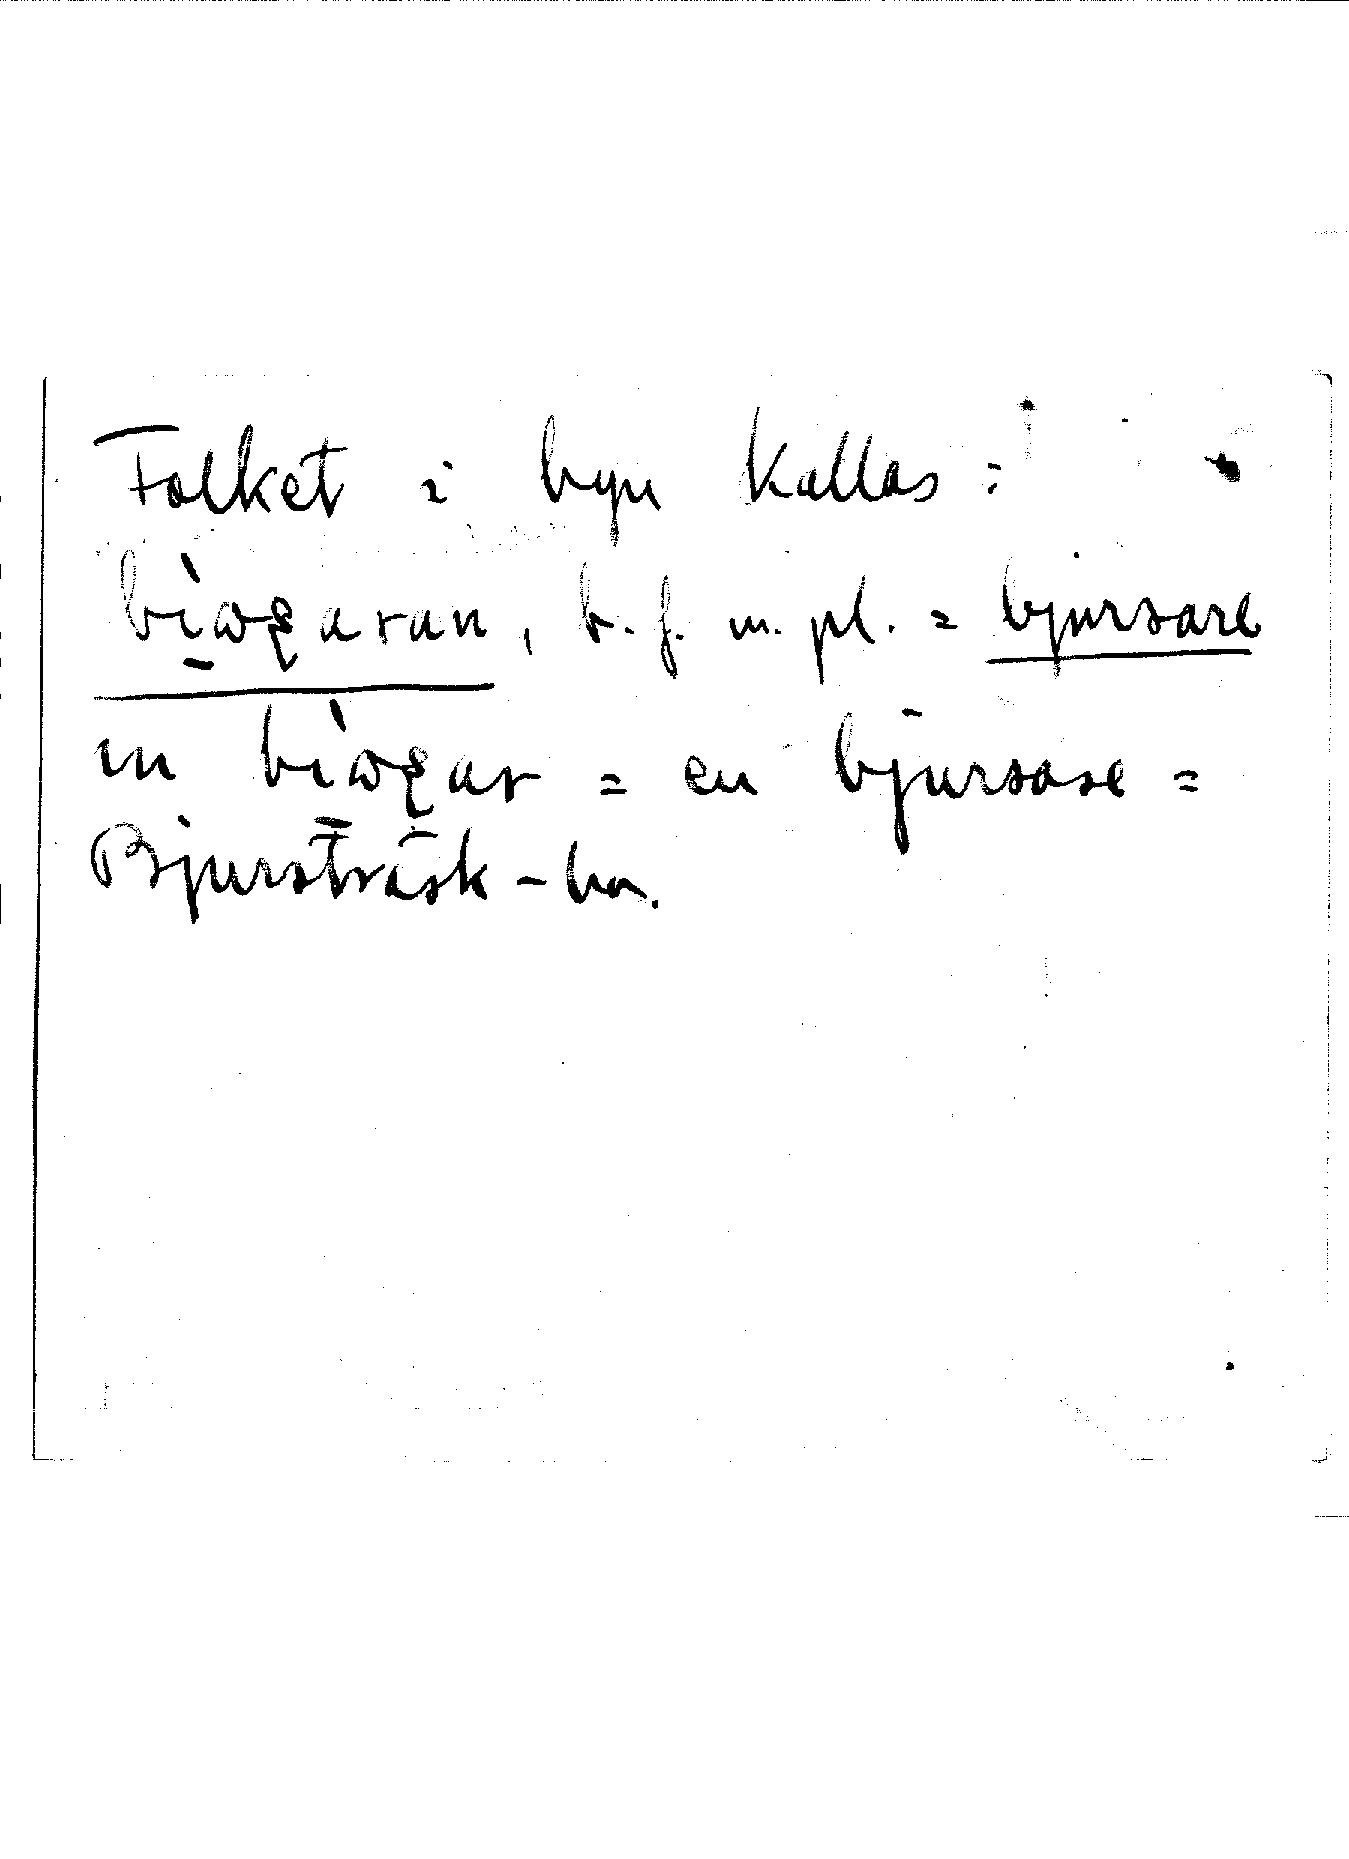 Folket i byn kallas:
bìωʂaran, b. f. m. pl. = bjursare
in bìωʂar = en bjursare =
Bjursträsk-bo.